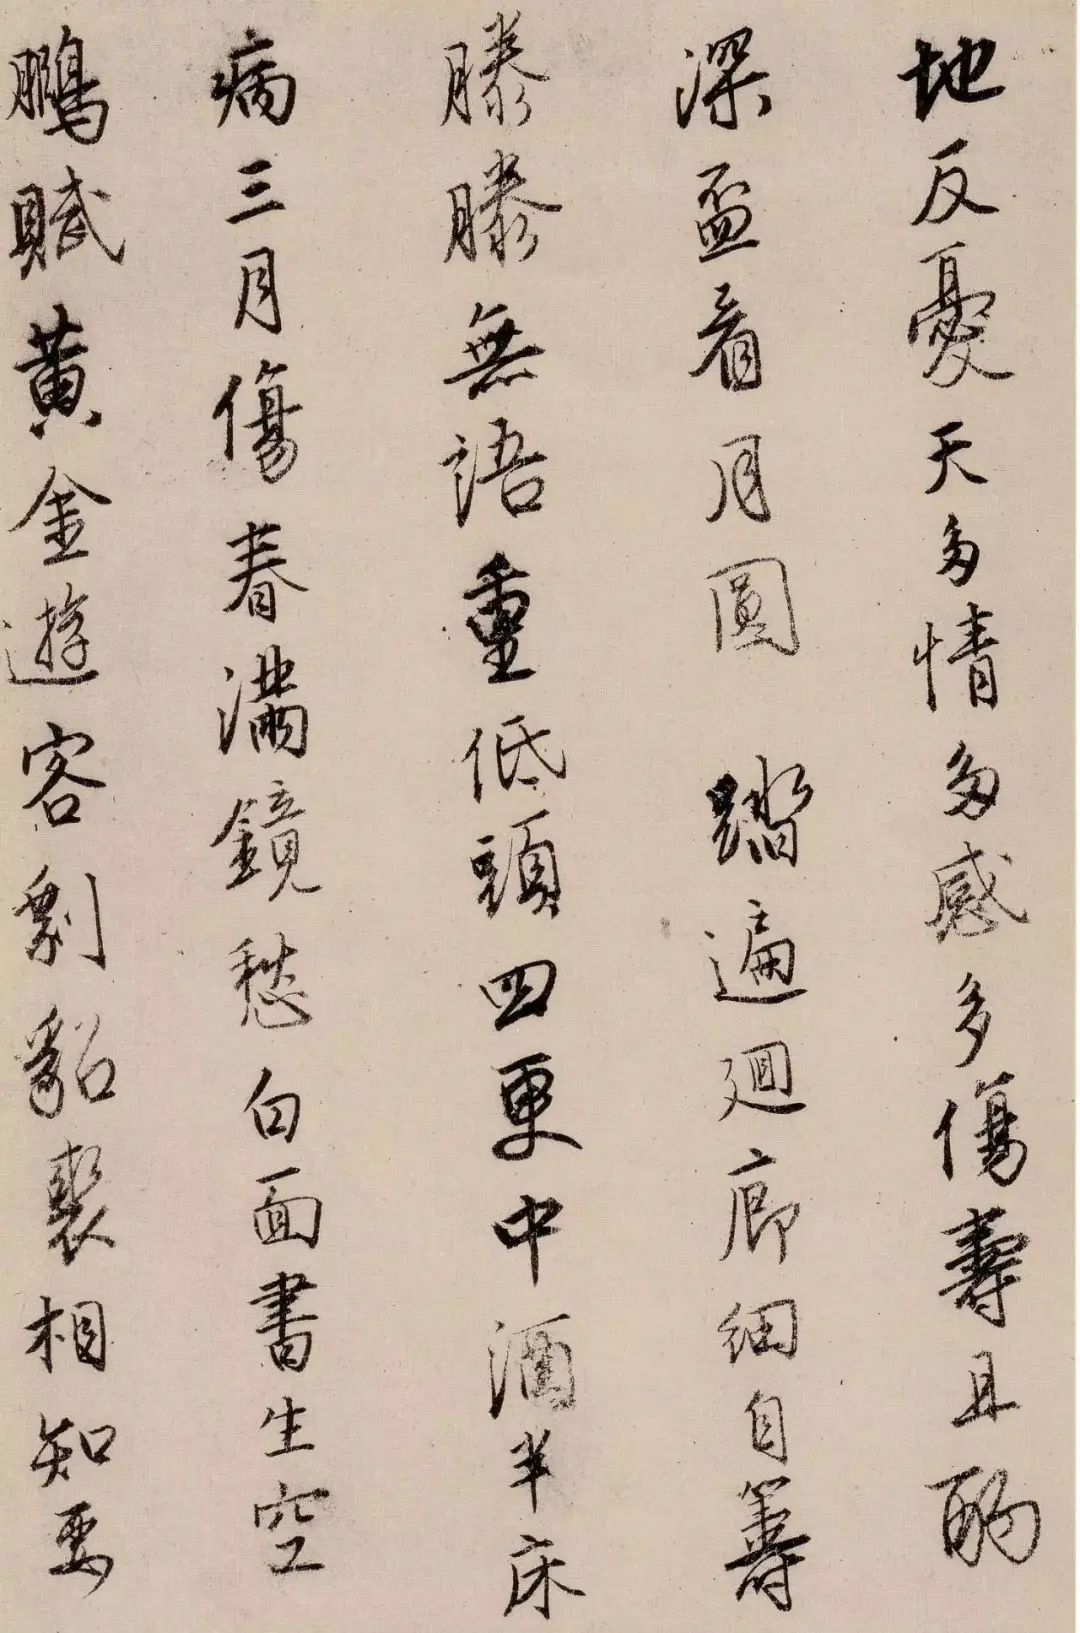 地反憂天多情多感多傷壽且酌
深盃看月圓 踏遍迴廊細自籌
滕滕無語重低頭四更中酒半床
病三月傷春滿鏡愁白面書生空
鵬賦黃金遊客剩貂裘相知要